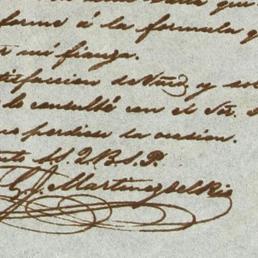 forme á la formula q
mi fianza.
tisfaccion de Vmd. y sol
lo consultó con el Sor.
no perdier la ocasion.
nto Sr. Q.B.S.P.
G. J. Martinez del Rio